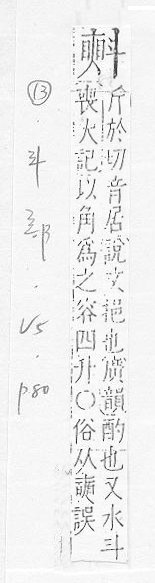 㪺
斤於切音居說文挹也廣韻酌也又水斗
喪大記以角爲之容四升○俗从奭誤
⑬·斗部·V5·p80